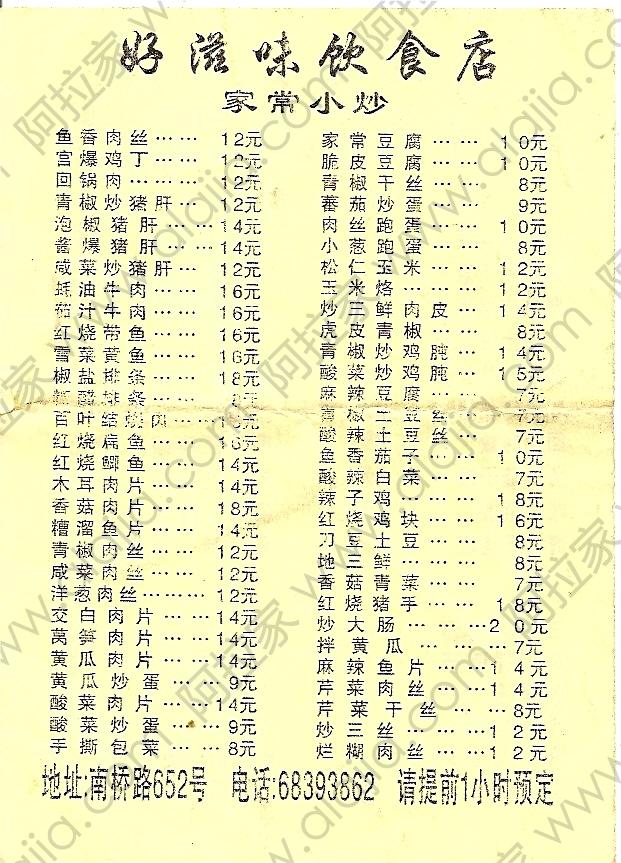 好滋味饮食店
家常小炒
鱼香肉丝……12元
宫爆鸡丁……12元
回锅肉………12元
青椒炒猪肝…12元
泡椒猪肝…14元
酱爆猪肝…14元
咸菜炒猪肝…12元
蚝油牛肉…16元
茄汁牛肉…16元
红烧带鱼…16元
雪菜黄鱼…16元
椒盐排条…18元
糖醋排条…8元
百叶结烧肉…16元
红烧扁鱼…16元
红烧鲫鱼…14元
木耳肉片…14元
香菇肉片…18元
糟溜鱼片…14元
青椒肉丝…12元
咸菜肉丝…12元
洋葱肉丝………12元
交白肉片…14元
莴笋肉片…14元
黄瓜肉片……14元
黄瓜炒蛋…9元
酸菜肉片…14元
酸菜炒蛋…9元
手撕包菜…8元
家常豆腐……10元
脆皮豆腐……10元
青椒干丝…8元
蕃茄炒蛋…9元
肉丝跑蛋…10元
小葱跑蛋…8元
松仁玉米…12元
玉米烙……12元
炒三鲜肉皮…14元
虎皮青椒…8元
青椒炒鸡肫…14元
酸菜炒鸡肫…15元
麻辣豆腐…7元
青椒土豆丝…7元
酸辣土豆丝…7元
鱼香茄子…10元
酸辣白菜…7元
辣子鸡……18元
红烧鸡块…16元
刀豆土豆…8元
地三鲜……8元
香菇青菜…7元
红烧猪手…18元
炒大肠……20元
拌黄瓜………7元
麻辣鱼片…14元
芹菜肉丝…14元
芹菜干丝……8元
炒三丝……12元
烂糊肉丝…12元
地址:南桥路652号 电话:68393862 请提前1小时预定
阿拉家 www.alajia.com